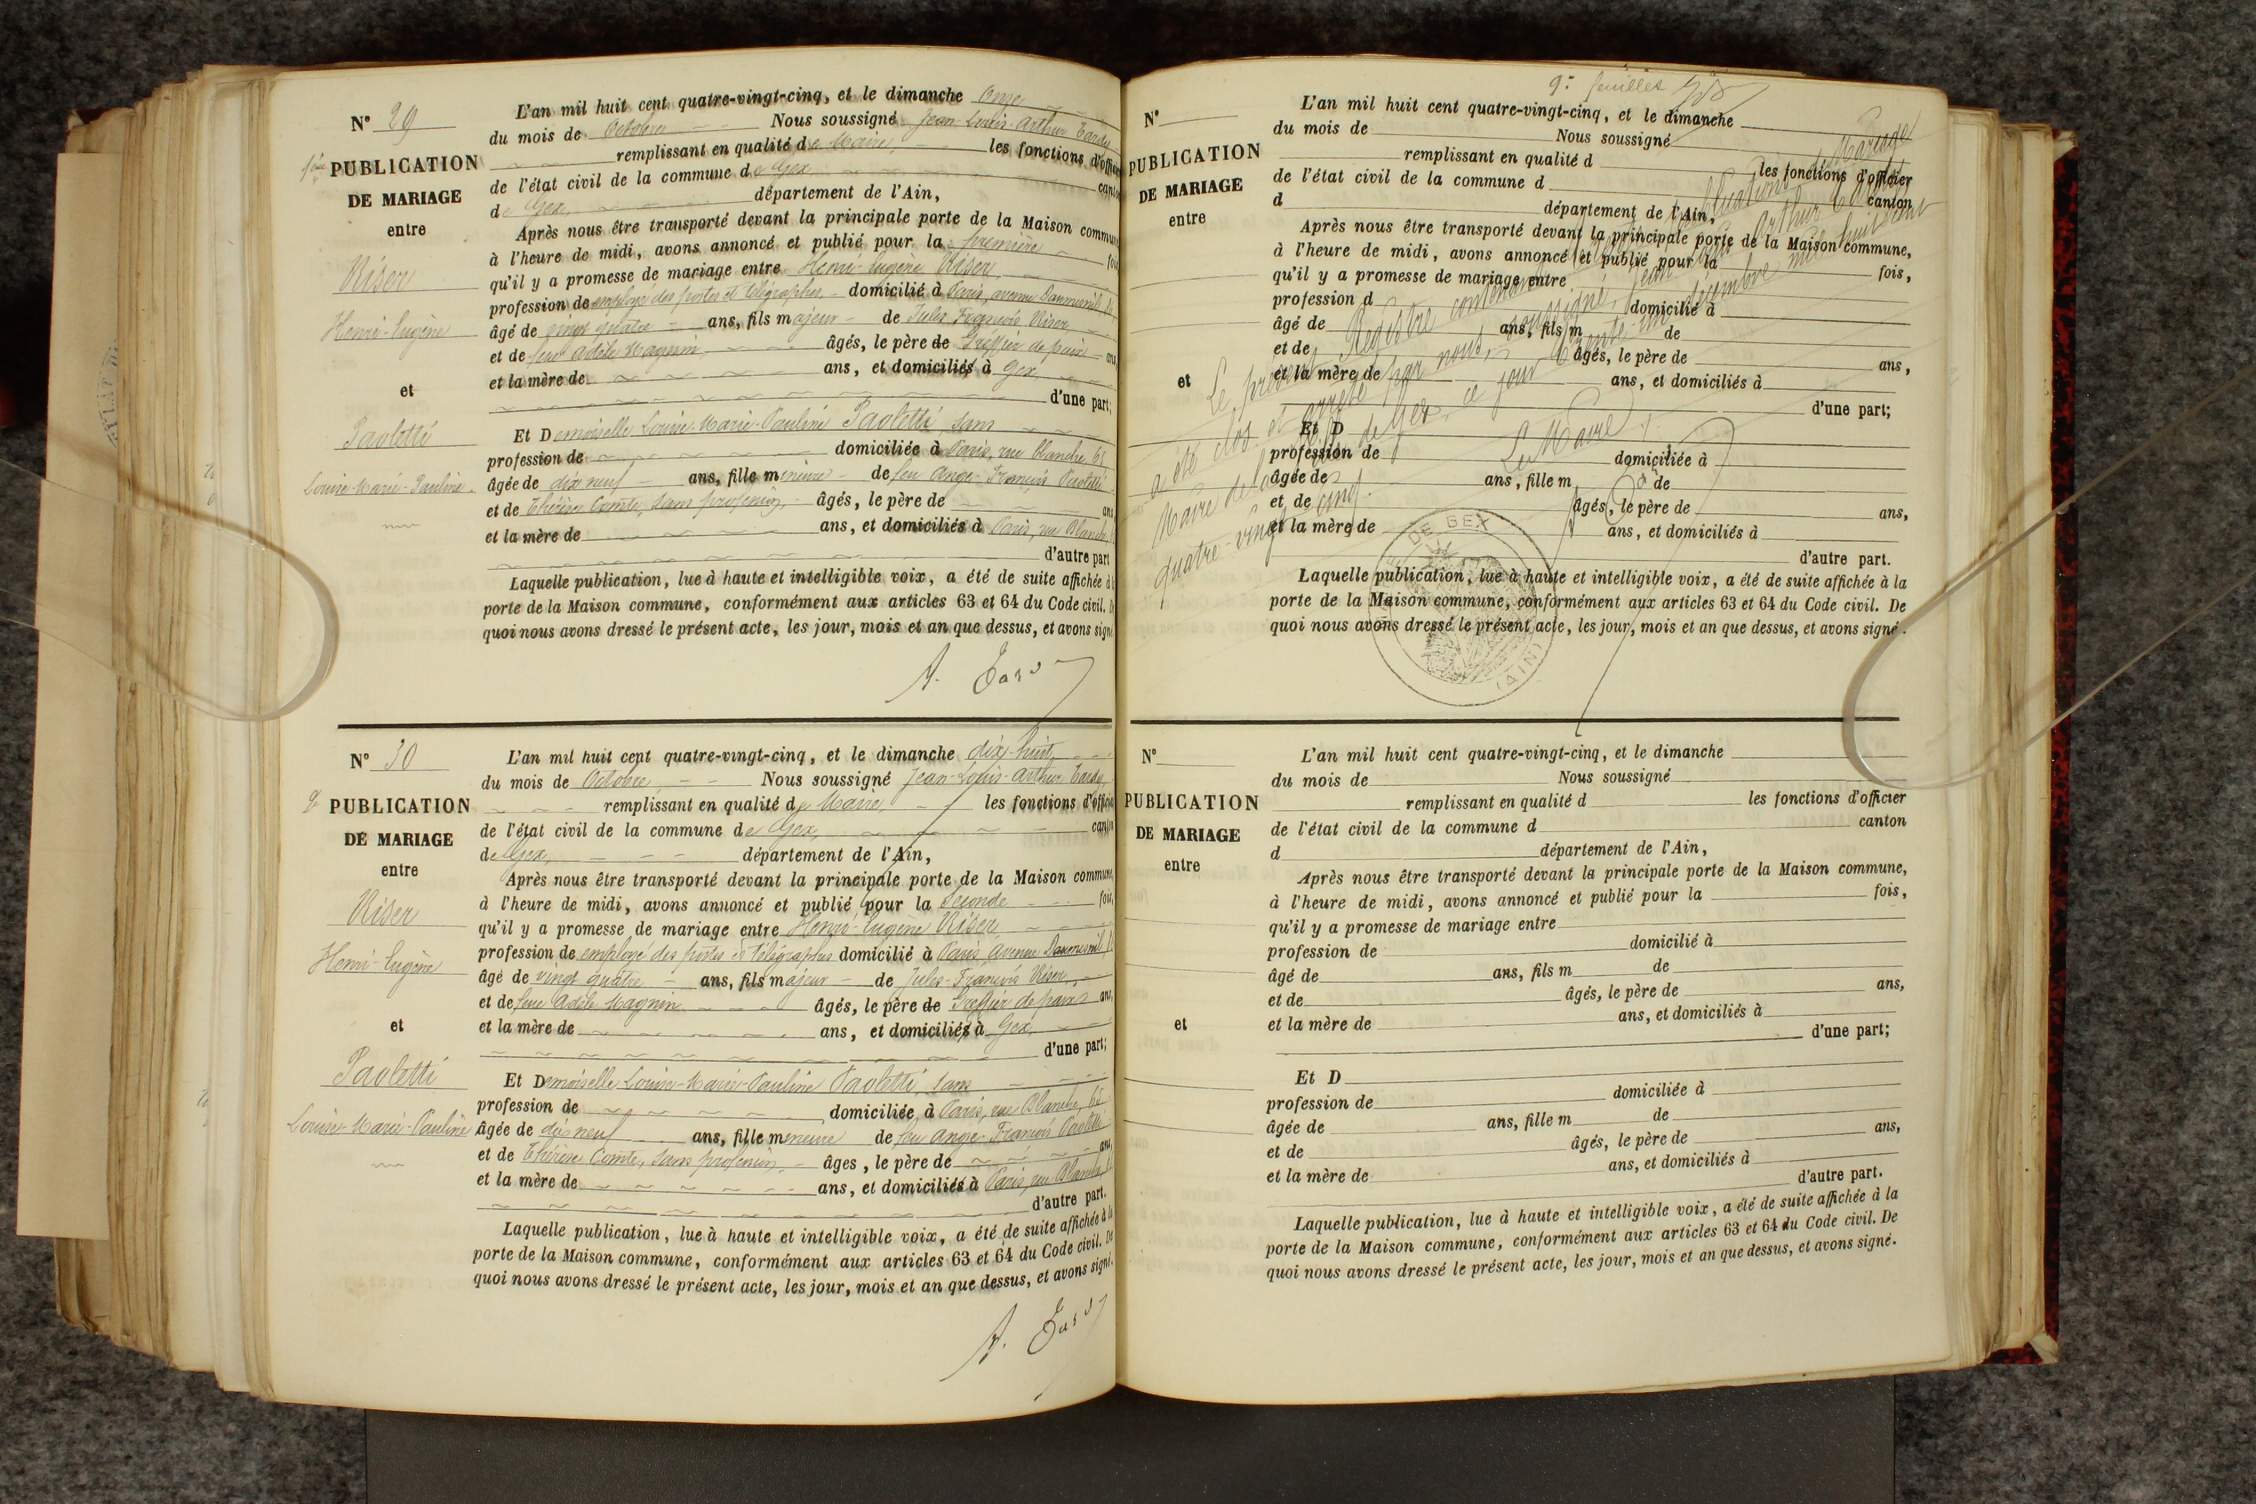 N° 29
1ère PUBLICATION
DE MARIAGE
entre
Riser
Henri-Eugène
et
Paoletti
Louise-Marie-Pauline
L'an mil huit cent quatre-vingt-cinq, et le dimanche Onze
du mois de Octobre Nous soussigné Jean-Louis-Arthur Tardy
remplissant en qualité de Maire, les fonctions d'officier
de l'état civil de la commune de Gex canton
de Gex, département de l'Ain,
Après nous être transporté devant la principale porte de la Maison commune
à l'heure de midi, avons annoncé et publié pour la première fois
qu'il y a promesse de mariage entre Henri-Eugène Riser,
profession de employé des postes et télégraphes, domicilié à Paris, avenue Daumesnil
âgé de vingt quatre ans, fils majeur de Jules-François Riser
et de feue Adèle Magnin âgés, le père de Greffier de paix ans
et la mère de ans, et domiciliés à Gex
d'une part;
Et Demoiselle Louise-Marie-Pauline Paoletti, sans
profession de domiciliée à Paris, rue Blanche, 65
âgée de dix neuf ans, fille mineure de feu Ange-François Paoletti
et de Thérèse Comte, sans profession, âgés, le père de ans
et la mère de ans, et domiciliés à Paris, rue Blanche,
d'autre part
Laquelle publication, lue à haute et intelligible voix, a été de suite affichée à la
porte de la Maison commune, conformément aux articles 63 et 64 du Code civil. De
quoi nous avons dressé le présent acte, les jour, mois et an que dessus, et avons signé
A. Tardy
N° 30
2e PUBLICATION
DE MARIAGE
entre
Riser
Henri-Eugène
et
Paoletti
Louise-Marie-Pauline
L'an mil huit cent quatre-vingt-cinq, et le dimanche dix-huit,
du mois de Octobre Nous soussigné Jean-Louis-Arthur Tardy,
remplissant en qualité de Maire, les fonctions d'officier
de l'état civil de la commune de Gex, canton
de Gex, département de l'Ain,
Après nous être transporté devant la principale porte de la Maison commune,
à l'heure de midi, avons annoncé et publié pour la Seconde fois,
qu'il y a promesse de mariage entre Henri-Eugène Riser
profession de employé des postes et télégraphes domicilié à Paris, avenue Daumesnil
âgé de vingt quatre ans, fils majeur de Jules-François Riser,
et de feue Adèle Magnin âgés, le père de Greffier de paix ans,
et la mère de ans, et domiciliés à Gex,
d'une part;
Et Demoiselle Louise-Marie-Pauline Paoletti, sans
profession de domiciliée à Paris, rue Blanche, 65
âgée de dix neuf ans, fille mineure de feu Ange-François Paoletti
et de Thérèse Comte, sans profession, âges, le père de ans,
et la mère de ans, et domiciliés à Paris, rue Blanche,
d'autre part.
Laquelle publication, lue à haute et intelligible voix, a été de suite affichée à la
porte de la Maison commune, conformément aux articles 63 et 64 du Code civil. De
quoi nous avons dressé le présent acte, les jour, mois et an que dessus, et avons signé.
A. Tardy
9e feuilles
N°
PUBLICATION
DE MARIAGE
entre
et
L'an mil huit cent quatre-vingt-cinq, et le dimanche
du mois de Nous soussigné
remplissant en qualité d les fonctions d'officier
de l'état civil de la commune d canton
d département de l'Ain,
Après nous être transporté devant la principale porte de la Maison commune,
à l'heure de midi, avons annoncé et publié pour la fois,
qu'il y a promesse de mariage entre
profession d domicilié à
âgé de ans, fils m de
et de âgés, le père de ans,
et la mère de ans, et domiciliés à
d'une part;
Et D
profession de domiciliée à
âgée de ans, fille m de
et de âgés, le père de ans,
et la mère de ans, et domiciliés à
d'autre part.
Laquelle publication, lue à haute et intelligible voix, a été de suite affichée à la
porte de la Maison commune, conformément aux articles 63 et 64 du Code civil. De
quoi nous avons dressé le présent acte, les jour, mois et an que dessus, et avons signé.
Le présent Registre contenant publications de Mariage
a été clos et arrêté par nous, soussigné, Jean Louis Arthur Tardy,
Maire de la ville de Gex, ce jour trente-un décembre mil huit cent
quatre-vingt cinq.
Le Maire,
DE GEX
(AIN)
N°
PUBLICATION
DE MARIAGE
entre
et
L'an mil huit cent quatre-vingt-cinq, et le dimanche
du mois de Nous soussigné
remplissant en qualité d les fonctions d'officier
de l'état civil de la commune d canton
d département de l'Ain,
Après nous être transporté devant la principale porte de la Maison commune,
à l'heure de midi, avons annoncé et publié pour la fois,
qu'il y a promesse de mariage entre
profession de domicilié à
âgé de ans, fils m de
et de âgés, le père de ans,
et la mère de ans, et domiciliés à
d'une part;
Et D
profession de domiciliée à
âgée de ans, fille m de
et de âgés, le père de ans,
et la mère de ans, et domiciliés à
d'autre part.
Laquelle publication, lue à haute et intelligible voix, a été de suite affichée à la
porte de la Maison commune, conformément aux articles 63 et 64 du Code civil. De
quoi nous avons dressé le présent acte, les jour, mois et an que dessus, et avons signé.